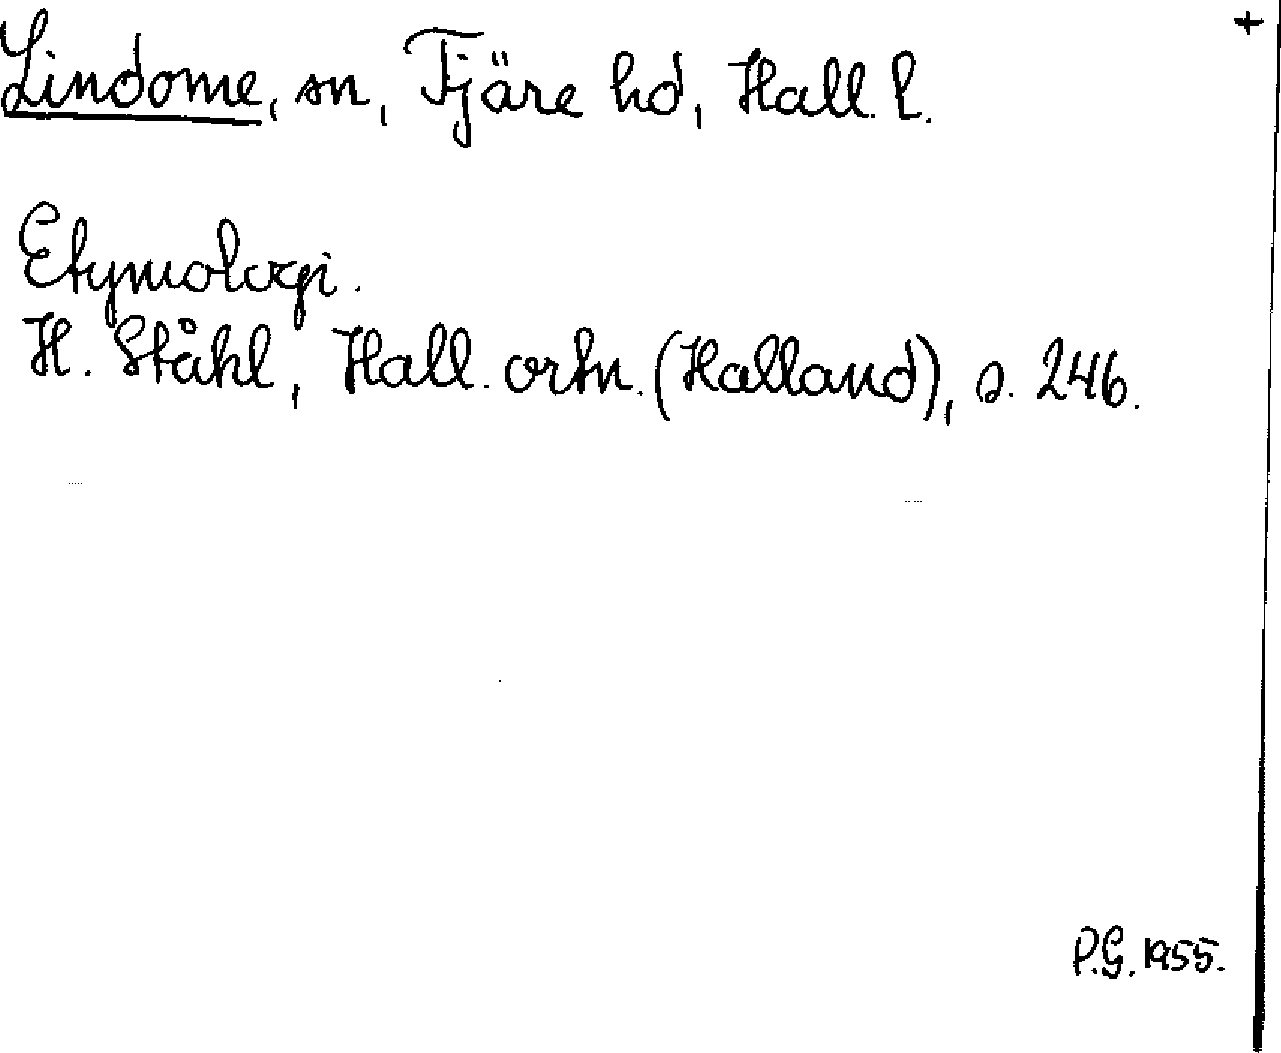 +
Lindome, sn, Fjäre hd, Hall. l.
Etymologi.
H. Ståhl, Hall. ortn. (Halland), s. 246.
P.G. 1955.